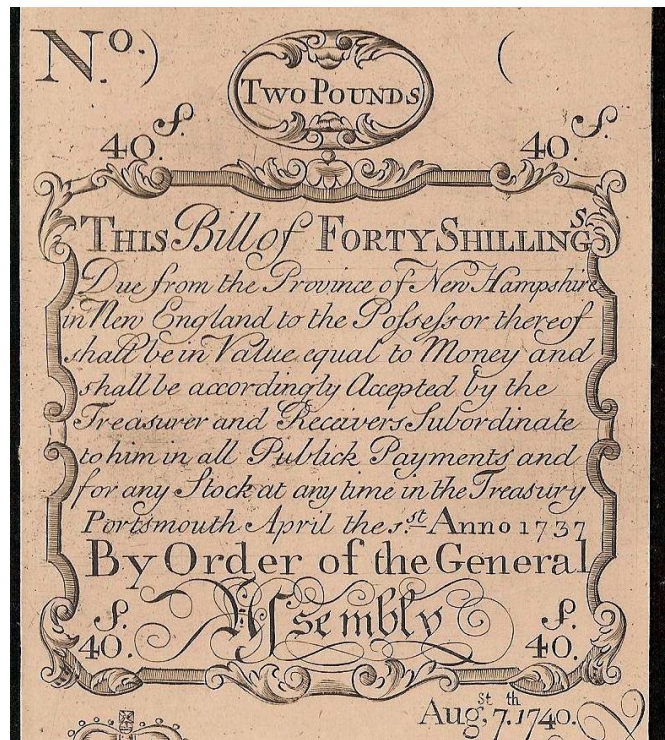 No.) (
TWO POUNDS
40.ſ. 40.ſ.
THIS Bill of FORTY SHILLINGs
Due from the Province of New Hampshire
in New England to the Poſseſsor thereof
shall be in Value equal to Money and
shall be accordingly Accepted by the
Treasurer and Receivers Subordinate
to him in all Publick Payments and
for any Stock at any time in the Treasury
Portsmouth April the 1.st Anno 1737
By Order of the General
Aſsembly
ſ.40. ſ.40.
Augst, 7.th 1740.